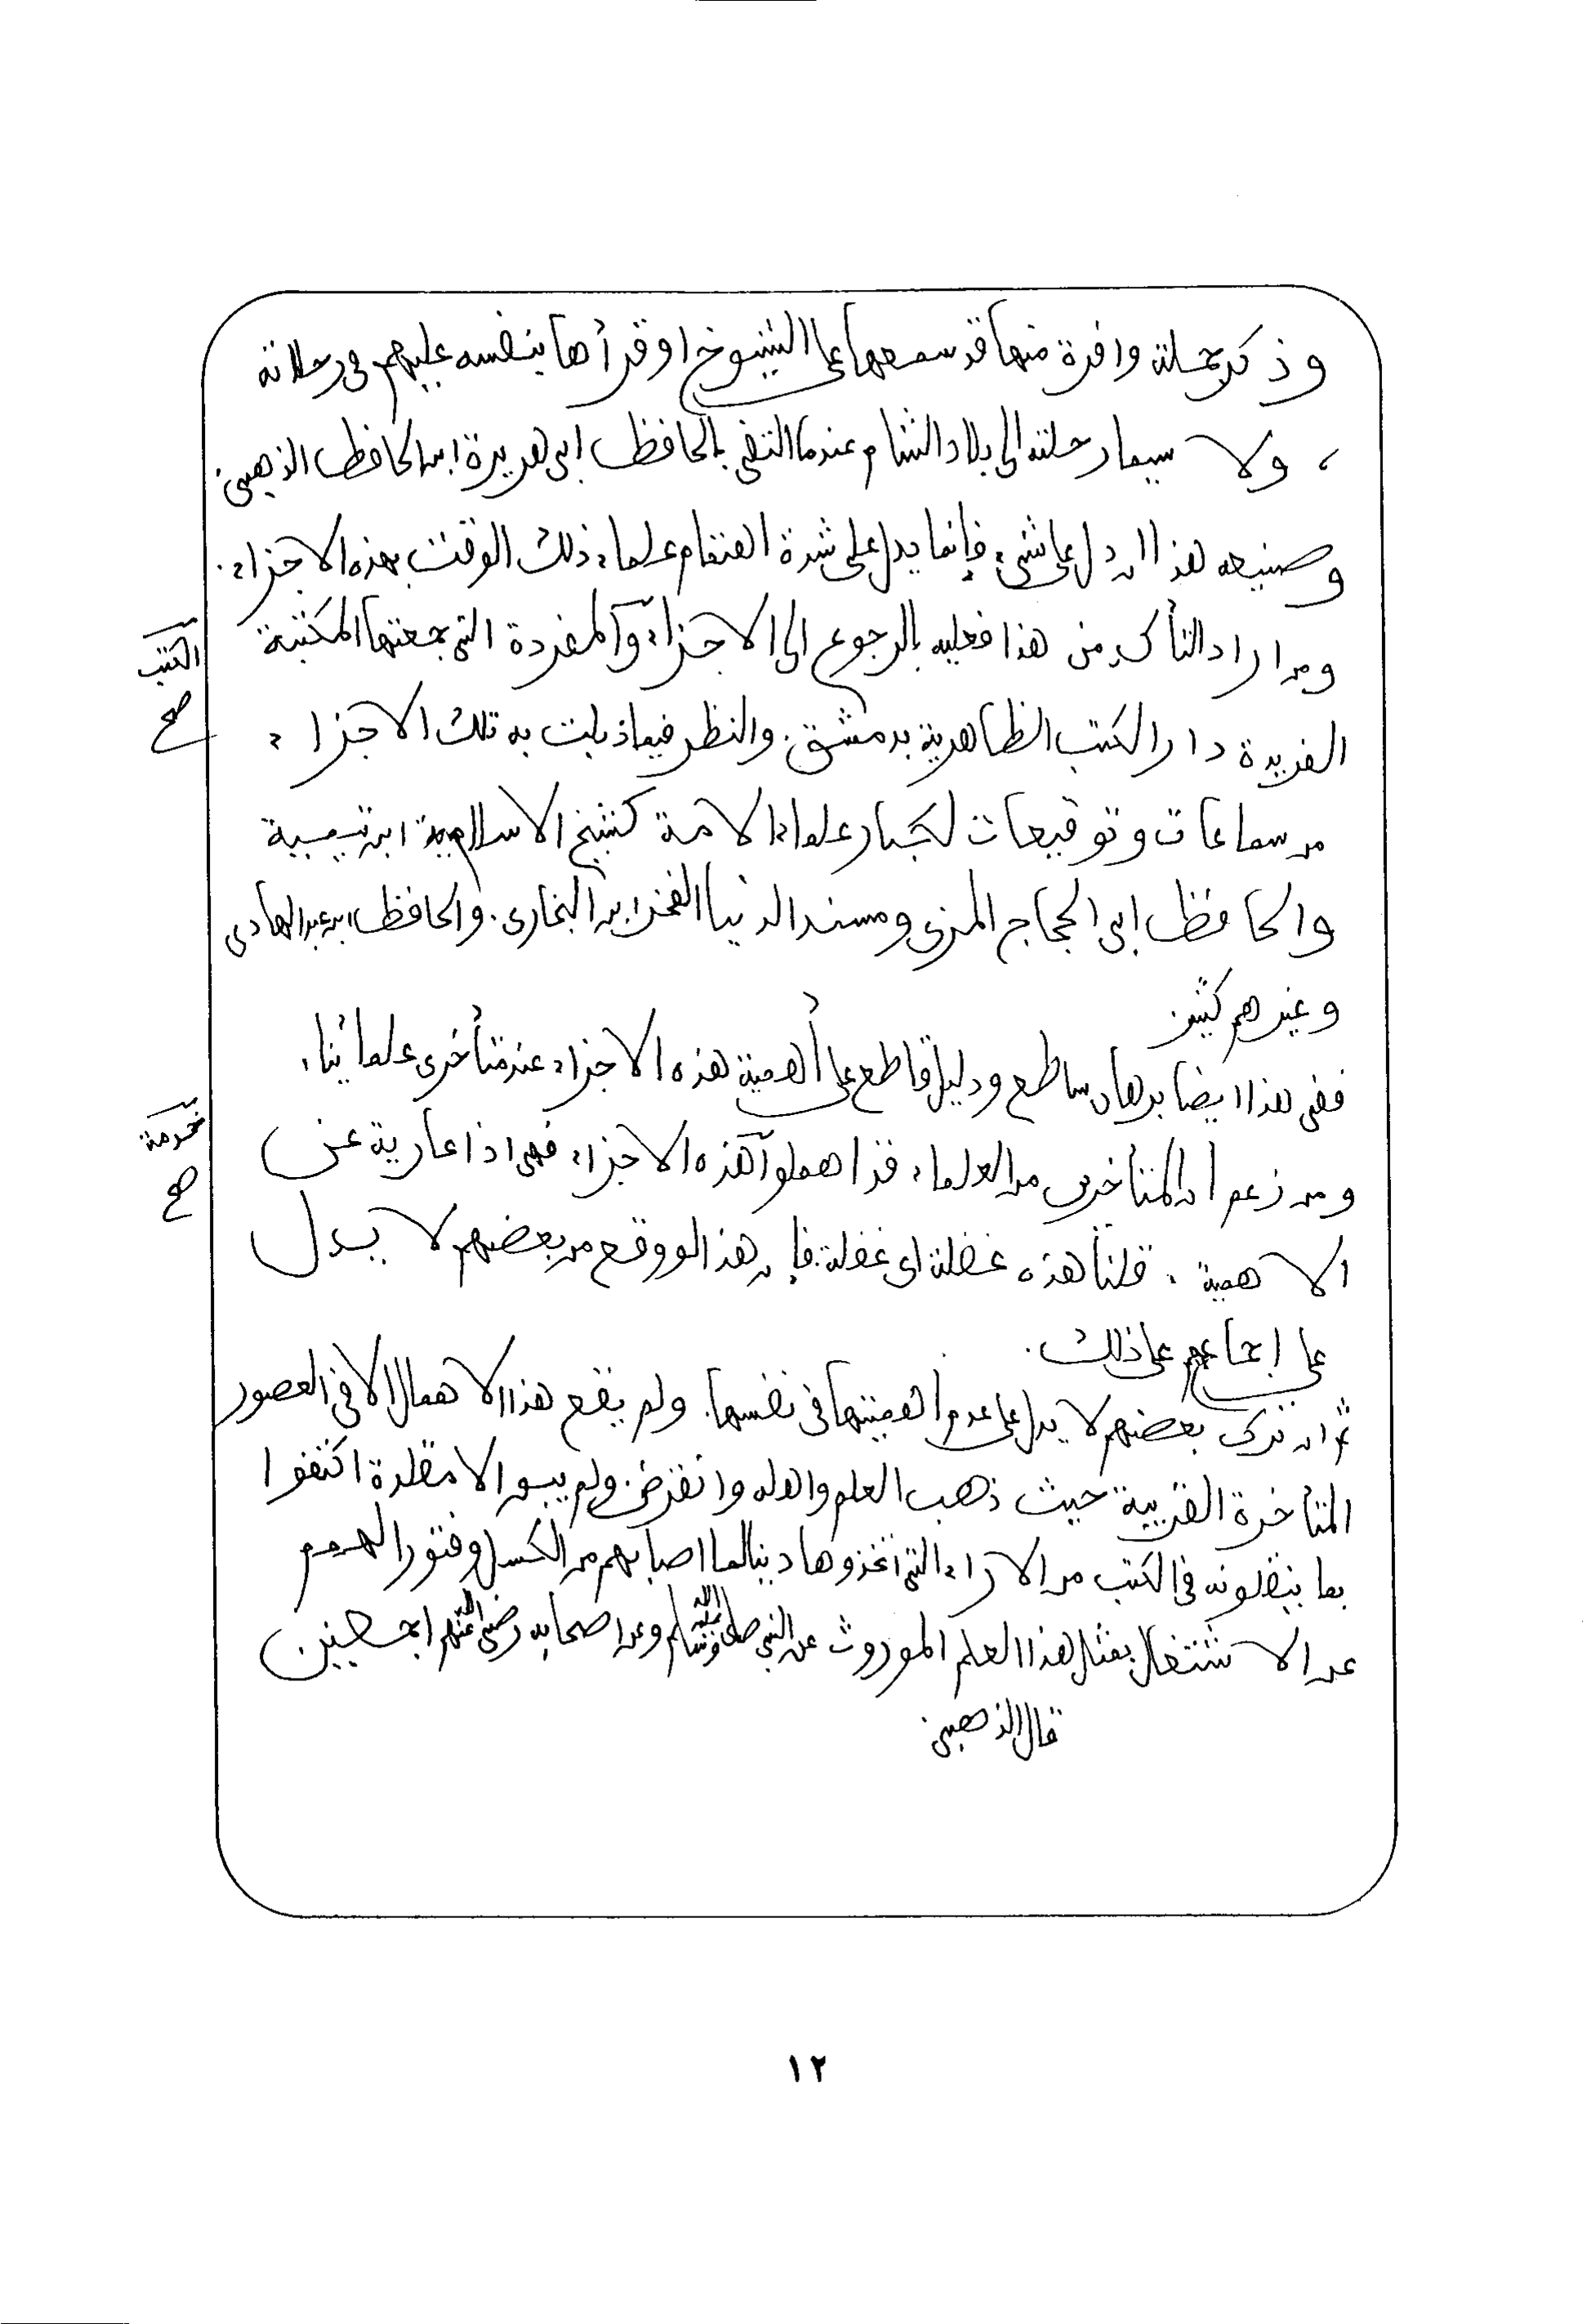 وذكر جملة وافرة منها قد سمعها على الشيوخ او قرأها بنفسه عليهم في رحلاته
، ولا سيما رحلته الى بلاد الشام عندما التقى بالحافظ ابى هريرة ابن الحافظ الذهبى
وصنيعه هذا ان دل على شىء فإنما يدل على شدة اهتمام علماء ذلك الوقت بهذه الاجزاء .
ومن اراد التأكد من هذا فعليه بالرجوع الى الاجزاء و المفردة التى جمعتها المكتبة
الكتب
صح
الفريدة دار الكتب الظاهرية بدمشق . والنظر فيما ذيلت به تلك الاجزاء
من سماعات وتوقيعات لكبار علماء الامة كشيخ الاسلام ابن تيمية
والحافظ ابى الحجاج المزى ومسند الدنيا الفخر ابن البخارى . والحافظ ابن عبد الهادى
وغيرهم كثير
ففى هذا ايضا برهان ساطع ودليل قاطع على أهمية هذه الاجزاء عند متأخرى علمائنا ،
ومن زعم أن المتأخرين من العلماء قد اهملوا هذه الاجزاء فهى اذا عارية عن
خدمة
صح
الاهمية . قلنا هذه غفلة اى غفلة . فإن هذا لو وقع من بعضهم لا يدل
على اجماعهم على ذلك .
ثم ان ترك بعضهم لا يدل على عدم اهميتها فى نفسها . ولم يقع هذا الاهمال الا فى العصور
المتأخرة القريبة حيث ذهب العلم واهله وانقرض . ولم يبق الا مقلدة اكتفوا
بما ينقلونه فى الكتب من الاراء التى اتخذوها دينا لما اصابهم من الكسل وفتور الهمم
عن الاشتغال بمثل هذا العلم الموروث عن النبى صلى الله عليه وسلم وعن اصحابه رضى الله عنهم اجمعين
قال الذهبى
١٢